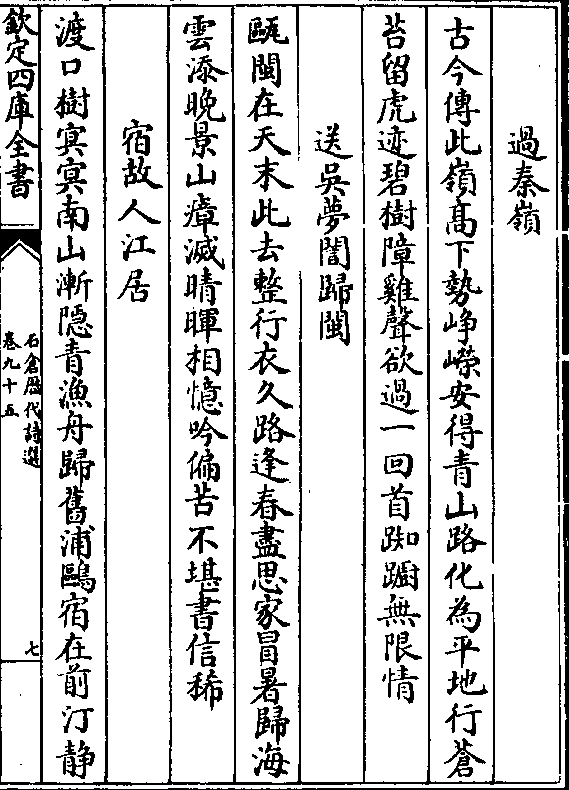 過秦嶺
古今傳此嶺髙下勢崢嶸安得青山路化為平地行蒼
苔留虎迹碧樹障雞聲欲過一回首踟蹰無限情
送吳夢誾歸閩
甌閩在天末此去整行衣久路逢春盡思家冒暑歸海
雲添晚景山瘴減晴暉相憶吟偏苦不堪書信稀
宿故人江居
渡口樹冥冥南山漸隠青漁舟歸舊浦鷗宿在前汀静
欽定四庫全書
石倉歴代詩選
卷九十五
七